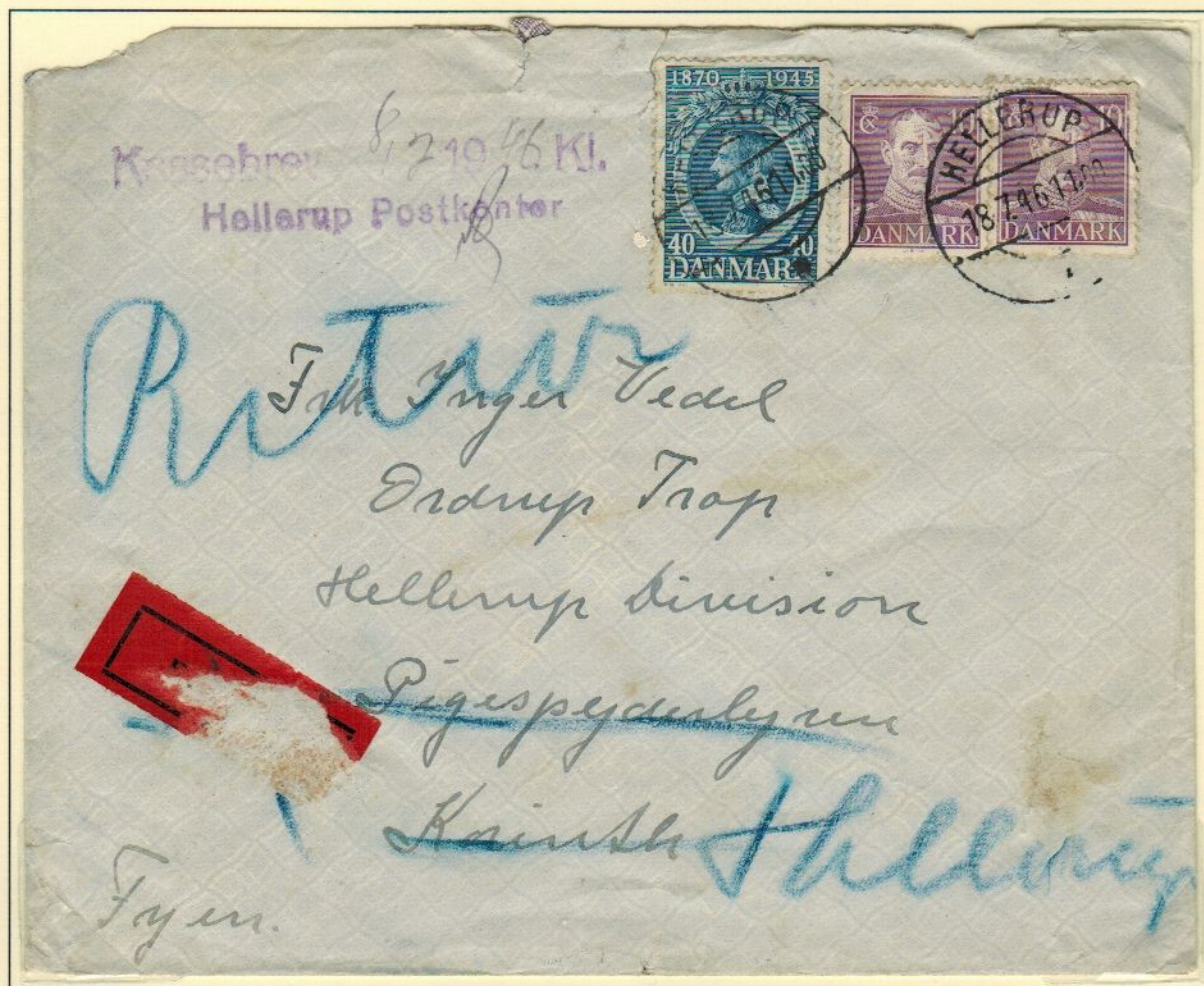 Kassebrev 8/7 1946 Kl.
Hellerup Postkontor
1870 1945
40 40
DANMARK
DANMARK
10
DANMARK
HELLERUP
18.7.46.11.00
Retur
Frk Inger Vedel
Ordrup Trop
Hellerup Division
Pigespejderlejren
Korinth
Hellerup
Fyen.